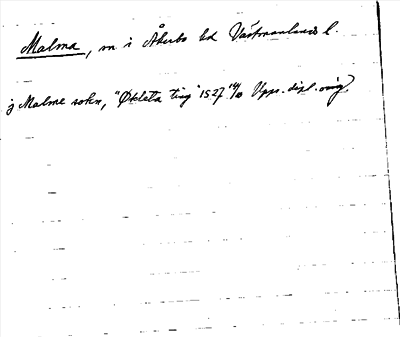 Malma, sn i Åkerbo hd Västmanlands l.
j Malme sokn, "Økleta ting" 1527 14/10 Upps. dipl. orig